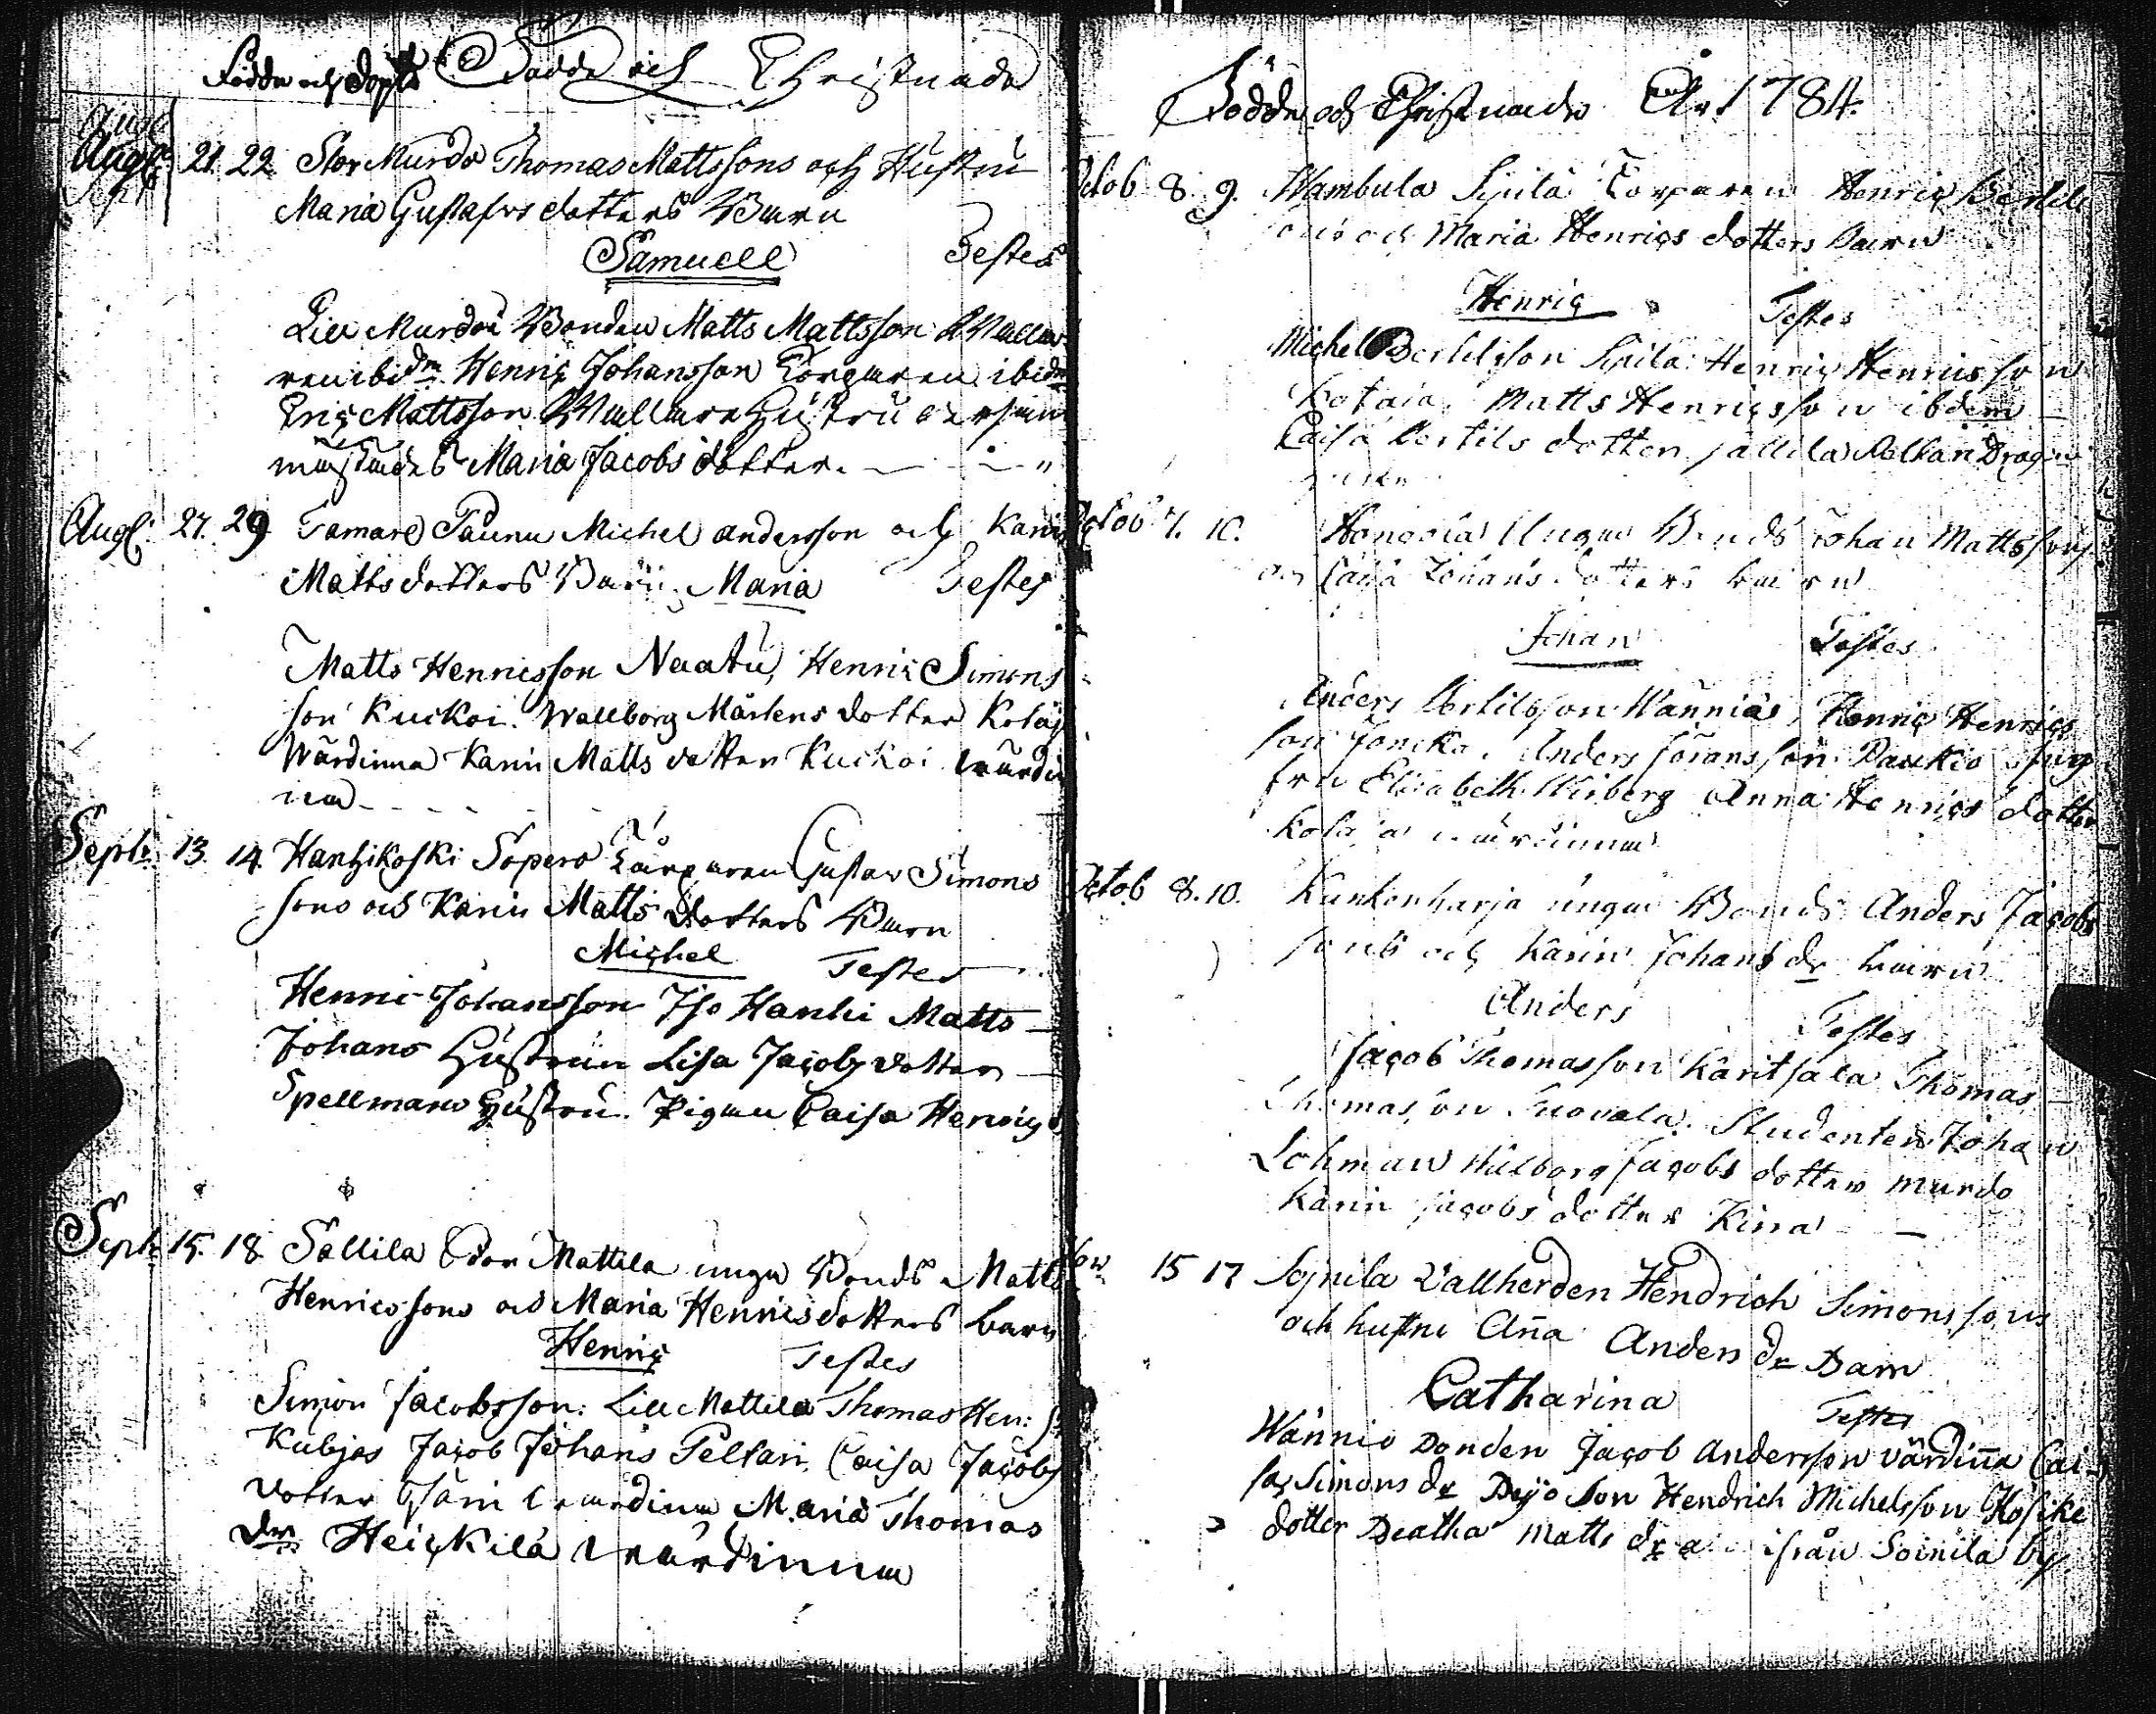 Födde och Döpte Födde och Christnade
Aug
Augt: 21. 22 Stor Murdo Thomas Mattssons och Hustru
Sept
Maria Gustafvs dotters Barn
Samuell Testes
Lill Murdoi Bonden Matts Mattsson
ren ibidm Henriç Johansson Torparen ibidm
Eriç Mattsson Hustru
Maria Jacobs dotter.
Augt: 27. 29 Tamare Paunu Michel andersson och Karin
Matts dotters Barn Maria Testes
Matts Henricsson Naatu, Henric Simons
son Kuckoi. Wallborg Mårtens dotter Kotaj
Wärdinna Karin Matts dotter Kuckoi wärdin
na
Septr: 13. 14. Hanhikoski Sopero Torparen Gustav Simons
sons och Karin Matts dotters Barn
Miçhel Testes
Henric Johansson Iso Hanhi Matts
Johans Hustrun Lisa Jaçobs dotter
Spellmans Hustru. Pigan Caisa Henriçs
Septr: 15. 18. Sallila Stor Mattila unga Bonds Matts
Henricssons och Maria Henrics dotters barn
Henriç Testes
Simon Jacobsson: Lill Mattila Thomas Hen: S:
Kubjas Jaçob Johans Peltari, Caisa Jaçobs
dotter Säri wärdinna Maria Thomas
dr Heiçkilä wärdinna
Födde och Christnade År 1784.
Octob 8. 9. Wambula Sipilä Torparen Henriç Bertils
sons och Maria Henriçs dotters barn
Henriç Testes
Michel Bertilsson Sipilä Henriç Henricsson
Kotaia. Matts Henriçsson ibidem
Caisa Bertils dotter Sallila
Octob 7. 10. unga Bonds Johan Mattssons
och Caisa Johans dotters barn
Johan Testes
Anders Bertilsson Wänniä, Henriç Henriçs
son Joncka. Anders Joransson Paukio Jung
fru Elisabeth Anna Henriçs dotter
Kotaja wärdinna
Octob 8. 10. Kunkenharja unga Bonds Anders Jaçobs
sons och Karin Johans dr barn
Anders Testes
Jaçob Thomasson Karitsala Thomas
Thomasson Suovala. Studenten Johan
Lohman Walborg Jaçobs dotter Murdo
Karin Jaçobs dotter Kirra
15 17 Sojnila Vallherden Hendrich Simonssons
och hustru Aña Anders dr Barn
Catharina Testes
Wännio Bonden Jaçob Andersson värdiña Cai-
sa Simons dr Dejo Son Hendrich Michelsson
dotter Beatha Matts dr ifrån Soinila by.